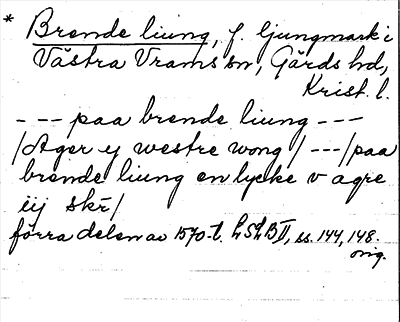 * Brende liung, f. ljungmark i
Västra Vrams sn, Gärds hd,
Krist. l.
--- paa brende liung ---
/Ager ej westre wong/ --- /paa
brende liung en lycke v agre
iij skr̄/
förra delen av 1570-t. LSLB II, ss. 144, 148.
orig.